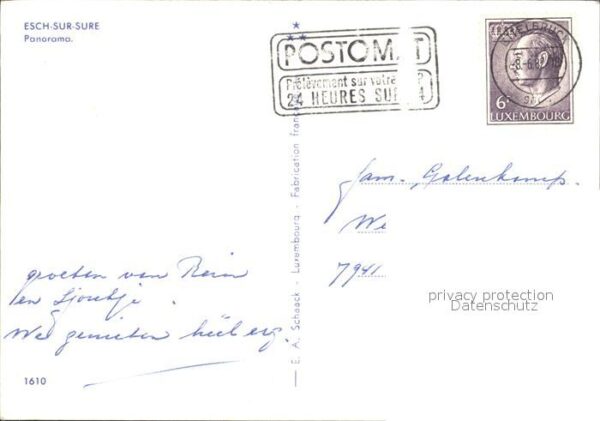 ESCH-SUR-SURE
Panorama.
POSTOMAT
Prélèvement sur votre
24 HEURES SUR 24
ETTELBRUCK
6F
LUXEMBOURG
fam. Galenkamp.
We
7941
groeten van Rein
en Sjoukje.
We genieten heel erg.
privacy protection
Datenschutz
E. A. Schaack - Luxembourg - Fabrication française
1610